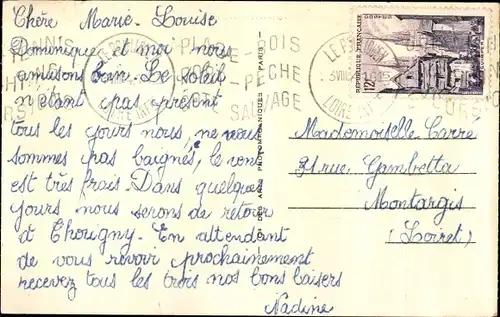 Chère Marie-Louise
Dominique et moi nous
amusons bien. Le soleil
n'etant pas présent
tous les jours nous ne nous
sommes pas baignés, le vent
est très frais. Dans quelques
jours nous serons de retour
à Chougny. En attendant
de vous revoir prochainement
recevez tous les trois nos bons baisers
Nadine
TENNIS
PLAGE - BOIS
GOLF - PÊCHE
CÔTE SAUVAGE
LE POULIGUEN
LOIRE INF
LE POULIGUEN
LOIRE INF
QUIMPER
12F
RÉPUBLIQUE FRANÇAISE
DES ARTS PHOTOMÉCANIQUES - PARIS
Mademoiselle Carre
31 rue Gambetta
Montargis
(Loiret)